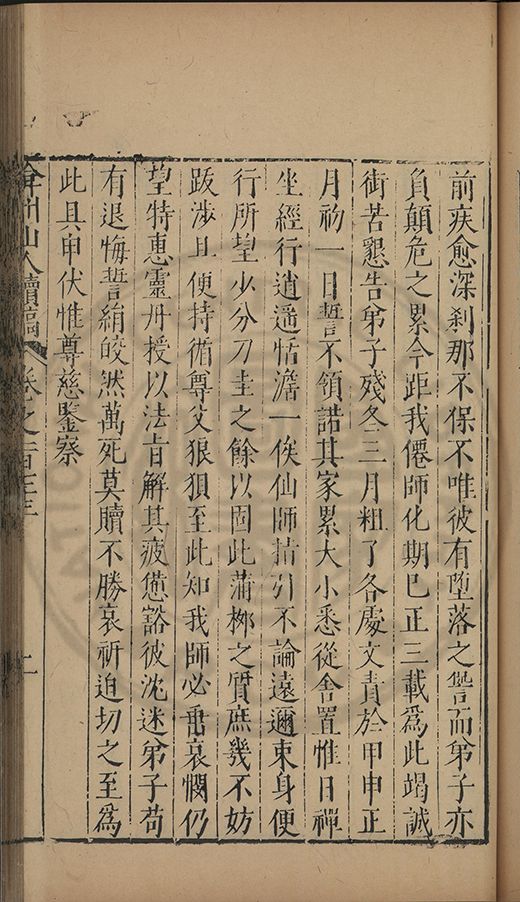 前疾愈深刹那不保不唯彼有墮落之讐而弟子亦
負顛危之累今距我僊師化期已正三載爲此竭誠
銜苦懇告弟子殘冬三月粗了各處文責於甲申正
月初一日誓不領諾其家累大小悉從舍置惟日禪
坐經行逍遥恬澹一俟仙師指引不論遠邇束身便
行所望少分刀圭之餘以固此蒲柳之質庶幾不妨
跋涉且便持循尊父狼狽至此知我師必垂哀憫仍
望特惠靈丹授以法旨解其疲憊豁彼沈迷弟子苟
有退悔誓絹皎然萬死莫贖不勝哀祈迫切之至爲
此具申伏惟尊慈鑒察
弇州山人續稿 卷之一百七十三
二